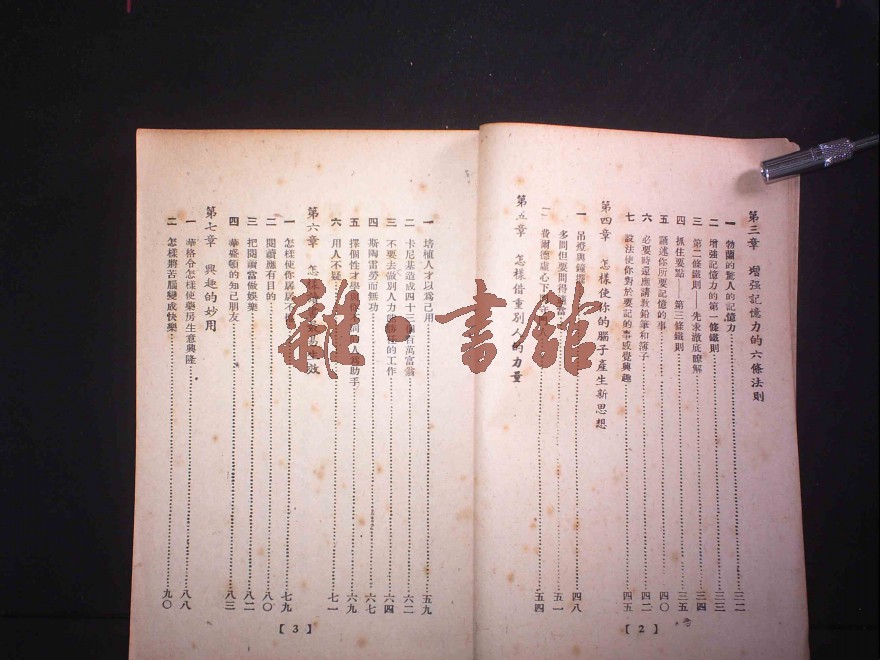 第三章 增强記憶力的六條法則
一 勃蘭的驚人的記憶力 三二
二 增強記憶力的第一條鐵則 三三
三 第二條鐵則——先求澈底瞭解 三四
四 抓住要點——第三條鐵則 三五
五 講述你所要記憶的事 四〇
六 必要時還應請教鉛筆和簿子 四二
七 設法使你對於要記的事感覺興趣 四五
第四章 怎樣使你的腦子產生新思想
一 吊燈與鐘擺 四八
二 多問但要問得適當 五一
三 費爾德虛心下 五四
第五章 怎樣借重別人的力量
【2】
一 培植人才以爲己用 五九
二 卡尼基造成四十三個百萬富翁 六二
三 不要去做別人力 的工作 六四
四 斯陶雷勞而無功 六七
五 擇個性才學 助手 六九
六 用人不疑 七一
第六章 怎樣 生效
一 怎樣使你 七九
二 閱讀應有目的 八〇
三 把閱讀當做娛樂 八二
四 華盛頓的知己朋友 八三
第七章 興趣的妙用
一 華格令怎樣使藥房生意興隆 八八
二 怎樣將苦腦變成快樂 九〇
【3】
雜·書館